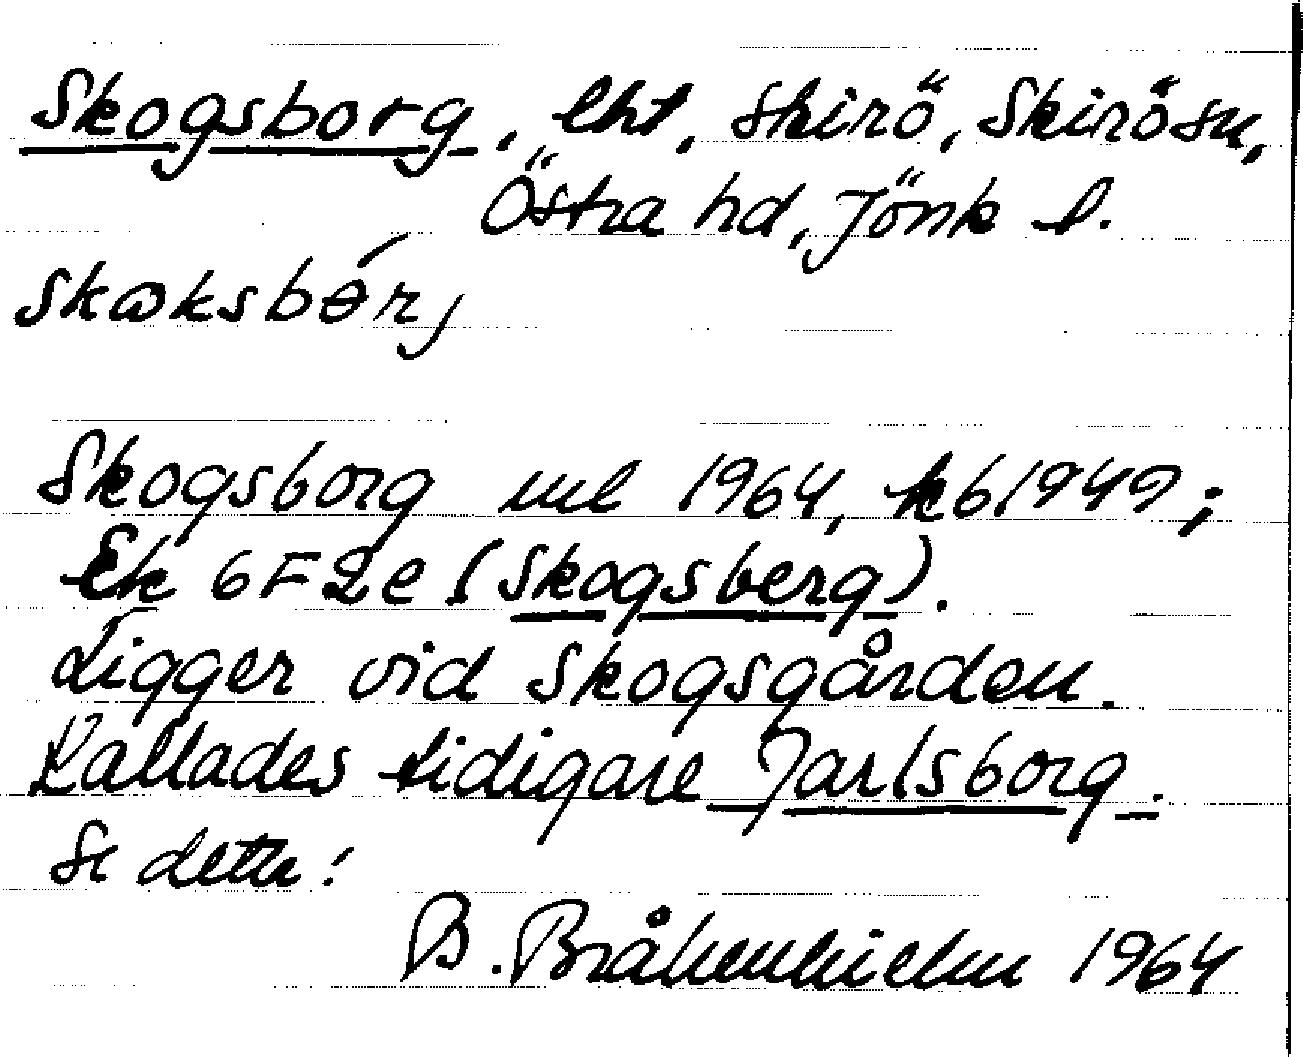 Skogsborg, lht, Skirö, Skirö sn,
Östra hd, Jönk l.
skωksbɵ́rj
Skogsborg ml 1964, kb 1949;
Ek 6F2e (Skogsberg).
Ligger vid Skogsgården.
Kallades tidigare Jarlsborg.
Se detta!
B. Bråkenhielm 1964